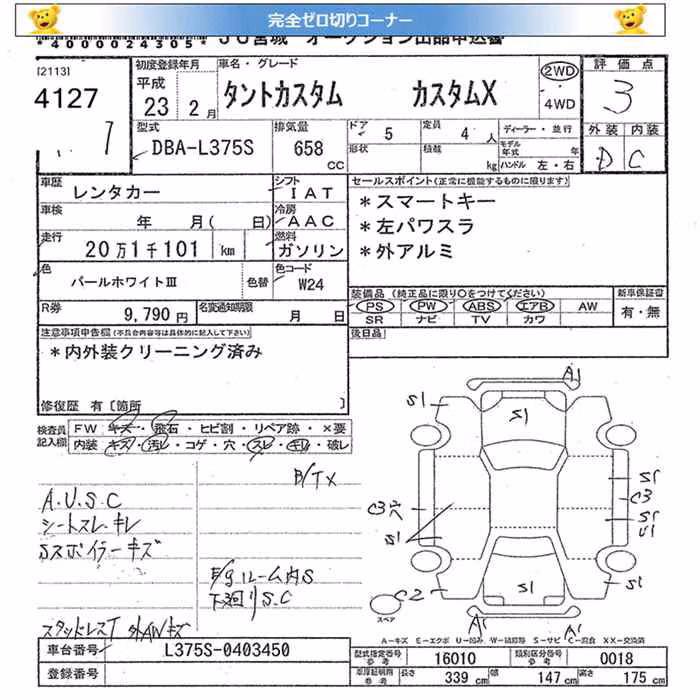 完全ゼロ切りコーナー
*4000024305* JU宮城 オークション出品申込書
[2113]
4127
初度登録年月
平成
23 2月
車名・グレード
タントカスタム カスタムX
2WD
4WD
評価点
3
型式
DBA-L375S
排気量
658
CC
ドア 5
定員 4人
形状
積載 kg
ディーラー・並行
モデル年式 年
ハンドル 左・右
外装 内装
D C
車歴
レンタカー
シフト
IAT
車検
年 月( 日)
冷房
AAC
走行
20万1千101 km
燃料
ガソリン
色
パールホワイトIII
色替
色コード
W24
R券
9,790円
名変通知期限
月 日
セールスポイント(正常に機能するものに限ります)
*スマートキー
*左パワスラ
*外アルミ
装備品(純正品に限り○をつけてください)
PS PW ABS エアB AW
SR ナビ TV カワ
新車保証書
有・無
後日品
注意事項申告欄(不具合内容等は具体的に記入して下さい)
*内外装クリーニング済み
修復歴 有[箇所 ]
検査員
記入欄
FW キズ・飛石・ヒビ割・リペア跡・×要
内装 キズ・汚レ・コゲ・穴・スレ・キレ・破レ
B/TX
A.U.S.C
シートスレ・キレ
Sスポイラーキズ
E/gルーム内S
下廻りS.C
スタッドレスT 外AWキズ
A1
S1
S1
S1
C3
S1
U1
C3穴
S1
C2
S1
S1
A1
A1
スペア
A-キズ E-エクボ U-凹み W-補修跡 S-サビ C-腐食 XX-交換済
車台番号
L375S-0403450
登録番号
型式指定番号
参考
16010
類別区分番号
参考
0018
車庫証明用
参考
長さ 339 cm
幅 147 cm
高さ 175 cm